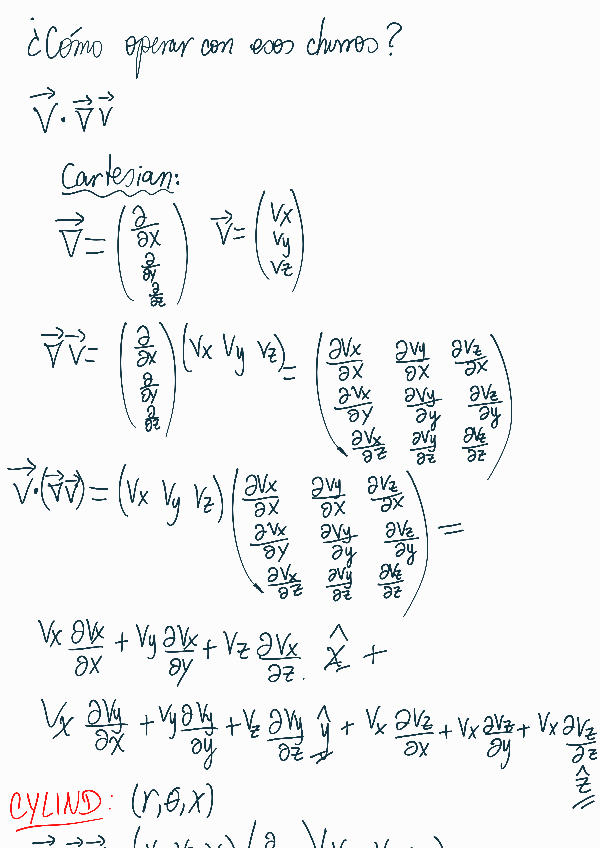 ¿Cómo operar con esos churros?
V⃗ · ∇⃗ V⃗
Cartesian:
∇⃗ = (∂/∂x ∂/∂y ∂/∂z) V⃗ = (Vx Vy Vz)
∇⃗V⃗ = (∂/∂x ∂/∂y ∂/∂z) (Vx Vy Vz) = (∂Vx/∂x ∂Vy/∂x ∂Vz/∂x
∂Vx/∂y ∂Vy/∂y ∂Vz/∂y
∂Vx/∂z ∂Vy/∂z ∂Vz/∂z)
V⃗·(∇⃗V⃗) = (Vx Vy Vz) (∂Vx/∂x ∂Vy/∂x ∂Vz/∂x
∂Vx/∂y ∂Vy/∂y ∂Vz/∂y =
∂Vx/∂z ∂Vy/∂z ∂Vz/∂z)
Vx ∂Vx/∂x + Vy ∂Vx/∂y + Vz ∂Vx/∂z. x̂ +
Vx ∂Vy/∂x + Vy ∂Vy/∂y + Vz ∂Vy/∂z ŷ + Vx ∂Vz/∂x + Vx ∂Vz/∂y + Vx ∂Vz/∂z
ẑ
CYLIND: (r,θ,x)